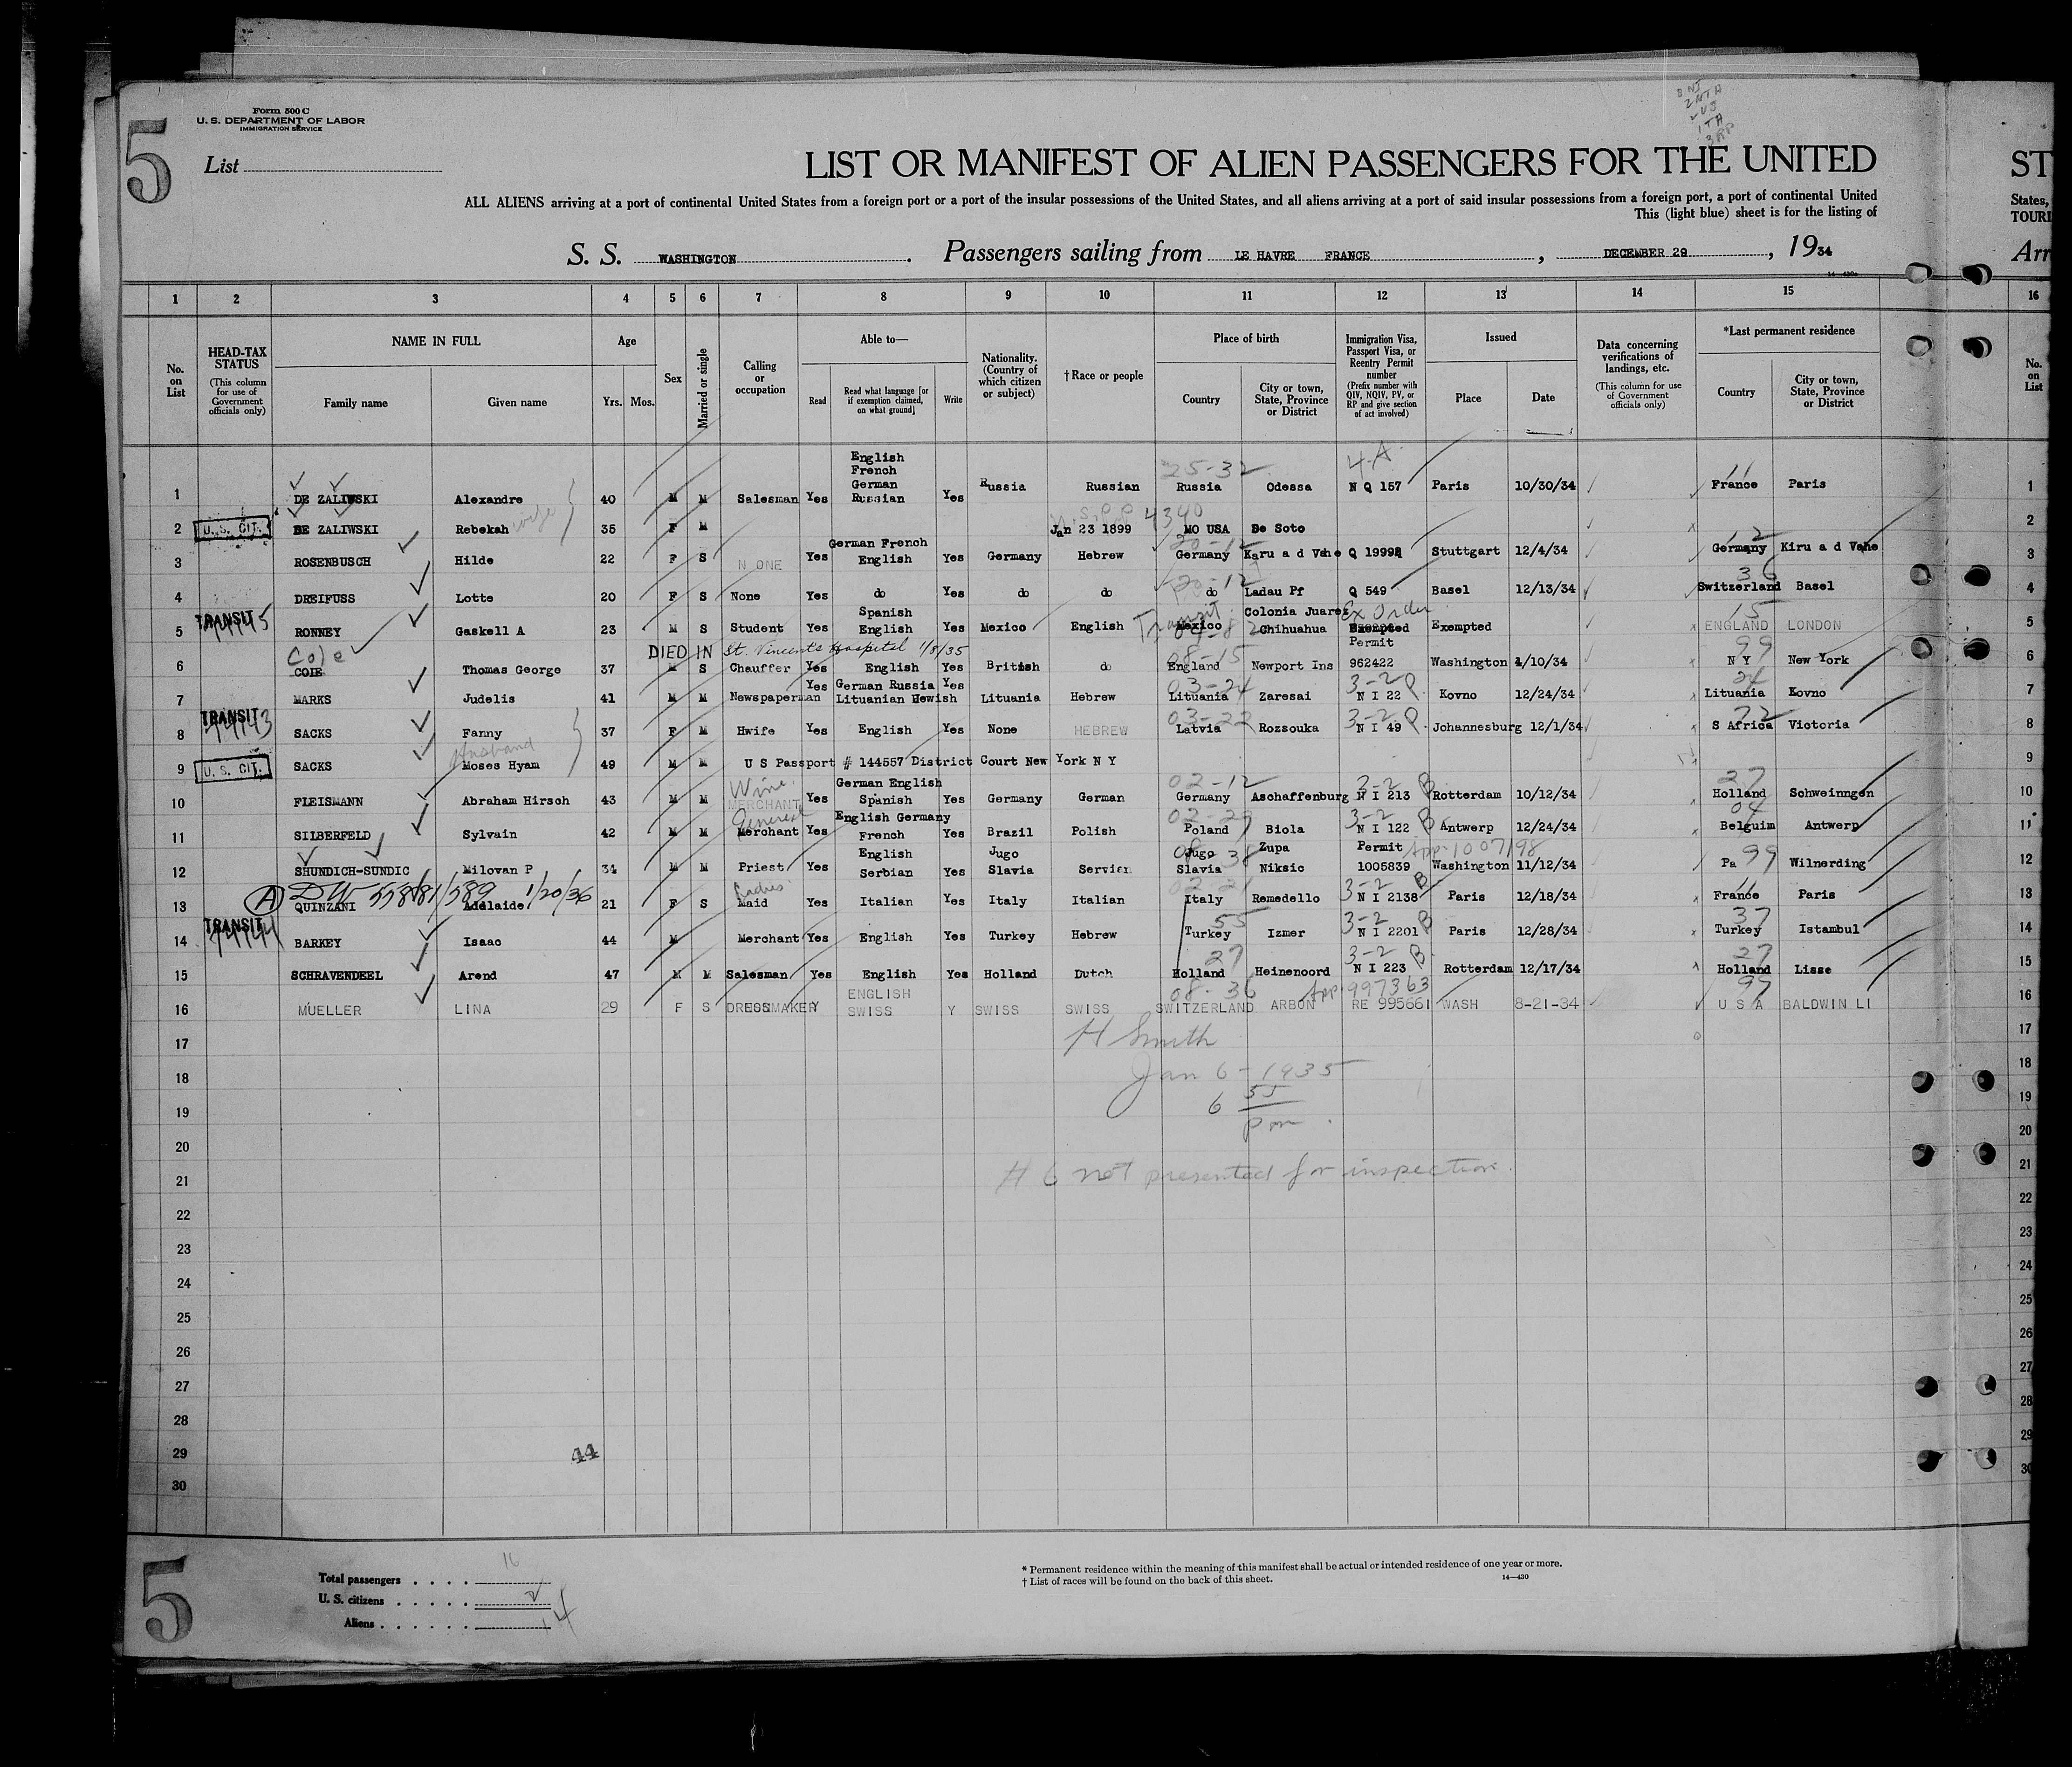 Form 500 C
U. S. DEPARTMENT OF LABOR
IMMIGRATION SERVICE
5
List
LIST OR MANIFEST OF ALIEN PASSENGERS FOR THE UNITED
ST
ALL ALIENS arriving at a port of continental United States from a foreign port or a port of the insular possessions of the United States, and all aliens arriving at a port of said insular possessions from a foreign port, a port of continental United
States,
This (light blue) sheet is for the listing of
TOURI
S. S. WASHINGTON. Passengers sailing from LE HAVRE FRANCE, DECEMBER 29, 1934
Arr
1 2 3 4 5 6 7 8 9 10 11 12 13 14 15 16
No. on List
HEAD-TAX STATUS (This column for use of Government officials only)
NAME IN FULL Family name Given name
Age Yrs. Mos.
Sex
Married or single
Calling or occupation
Able to— Read Read what language [or if exemption claimed, on what ground] Write
Nationality. (Country of which citizen or subject)
†Race or people
Place of birth Country City or town, State, Province or District
Immigration Visa, Passport Visa, or Reentry Permit number (Prefix number with QIV, NQIV, PV, or RP and give section of act involved)
Issued Place Date
Data concerning verifications of landings, etc. (This column for use of Government officials only)
*Last permanent residence Country City or town, State, Province or District
No. on List
1 DE ZALIWSKI Alexandre 40 M M Salesman Yes English French German Russian Yes Russia Russian 25-32 Russia Odessa 4-A N Q 157 Paris 10/30/34 11 France Paris 1
2 U. S. CIT. DE ZALIWSKI Rebekah wife 35 F M Jan 23 1899 4340 MO USA De Soto 2
3 ROSENBUSCH Hilde 22 F S NONE Yes German French English Yes Germany Hebrew 20-12 Germany Karu a d Vahe Q 19992 Stuttgart 12/4/34 12 Germany Kiru a d Vahe 3
4 DREIFUSS Lotte 20 F S None Yes do Yes do do 20-12 do Ladau Pf Q 549 Basel 12/13/34 36 Switzerland Basel 4
5 TRANSIT RONNEY Gaskell A 23 M S Student Yes Spanish English Yes Mexico English Transit Mexico Colonia Juarez Chihuahua Ex Order Exempted Exempted 15 ENGLAND LONDON 5
DIED IN St. Vincent's Hospital 1/8/35
6 Cole COIE Thomas George 37 M S Chauffer Yes English Yes British do 08-15 England Newport Ins Permit 962422 Washington 4/10/34 99 N Y New York 6
7 MARKS Judelis 41 M M Newspaperman Yes German Russia Lituanian Hewish Yes Lituania Hebrew 03-24 Lituania Zaresai 3-2 P N I 22 Kovno 12/24/34 24 Lituania Kovno 7
8 TRANSIT SACKS Fanny 37 F M Hwife Yes English Yes None HEBREW 03-22 Latvia Rozsouka 3-2 P N I 49 Johannesburg 12/1/34 72 S Africa Victoria 8
9 U. S. CIT. SACKS Husband Moses Hyam 49 M M U S Passport # 144557 District Court New York N Y 9
10 FLEISMANN Abraham Hirsch 43 M M Wine MERCHANT Yes German English Spanish Yes Germany German 02-12 Germany Aschaffenburg 3-2 B N I 213 Rotterdam 10/12/34 27 Holland Schweinngen 10
11 SILBERFELD Sylvain 42 M M General Merchant Yes English Germany French Yes Brazil Polish Poland Biola 3-2 B N I 122 Antwerp 12/24/34 04 Belguim Antwerp 11
12 SHUNDICH-SUNDIC Milovan P 34 M M Priest Yes English Serbian Yes Jugo Slavia Servian 08-38 Jugo Slavia Zupa Niksic Permit App-1007198 1005839 Washington 11/12/34 Pa 99 Wilnerding 12
13 QUINZANI Adelaide 1/20/36 21 F S Ladies Maid Yes Italian Yes Italy Italian 02-21 Italy Remedello 3-2 B N I 2138 Paris 12/18/34 11 France Paris 13
14 TRANSIT BARKEY Isaac 44 M Merchant Yes English Yes Turkey Hebrew 55 Turkey Izmer 3-2 B N I 2201 Paris 12/28/34 37 Turkey Istambul 14
15 SCHRAVENDEEL Arend 47 M M Salesman Yes English Yes Holland Dutch 27 Holland Heinenoord 3-2 B N I 223 Rotterdam 12/17/34 27 Holland Lisse 15
16 MUELLER LINA 29 F S DRESSMAKER Y ENGLISH SWISS Y SWISS SWISS 08-36 SWITZERLAND ARBON App-997363 RE 995661 WASH 8-21-34 99 U S A BALDWIN LI 16
17 H Smith 17
18 Jan 6-1935 18
19 6 55 19
20 pm 20
21 # 6 not presented for inspection. 21
22 22
23 23
24 24
25 25
26 26
27 27
28 28
29 44 29
30 30
5
Total passengers 16
U. S. citizens 2
Aliens 14
* Permanent residence within the meaning of this manifest shall be actual or intended residence of one year or more.
† List of races will be found on the back of this sheet.
14—430